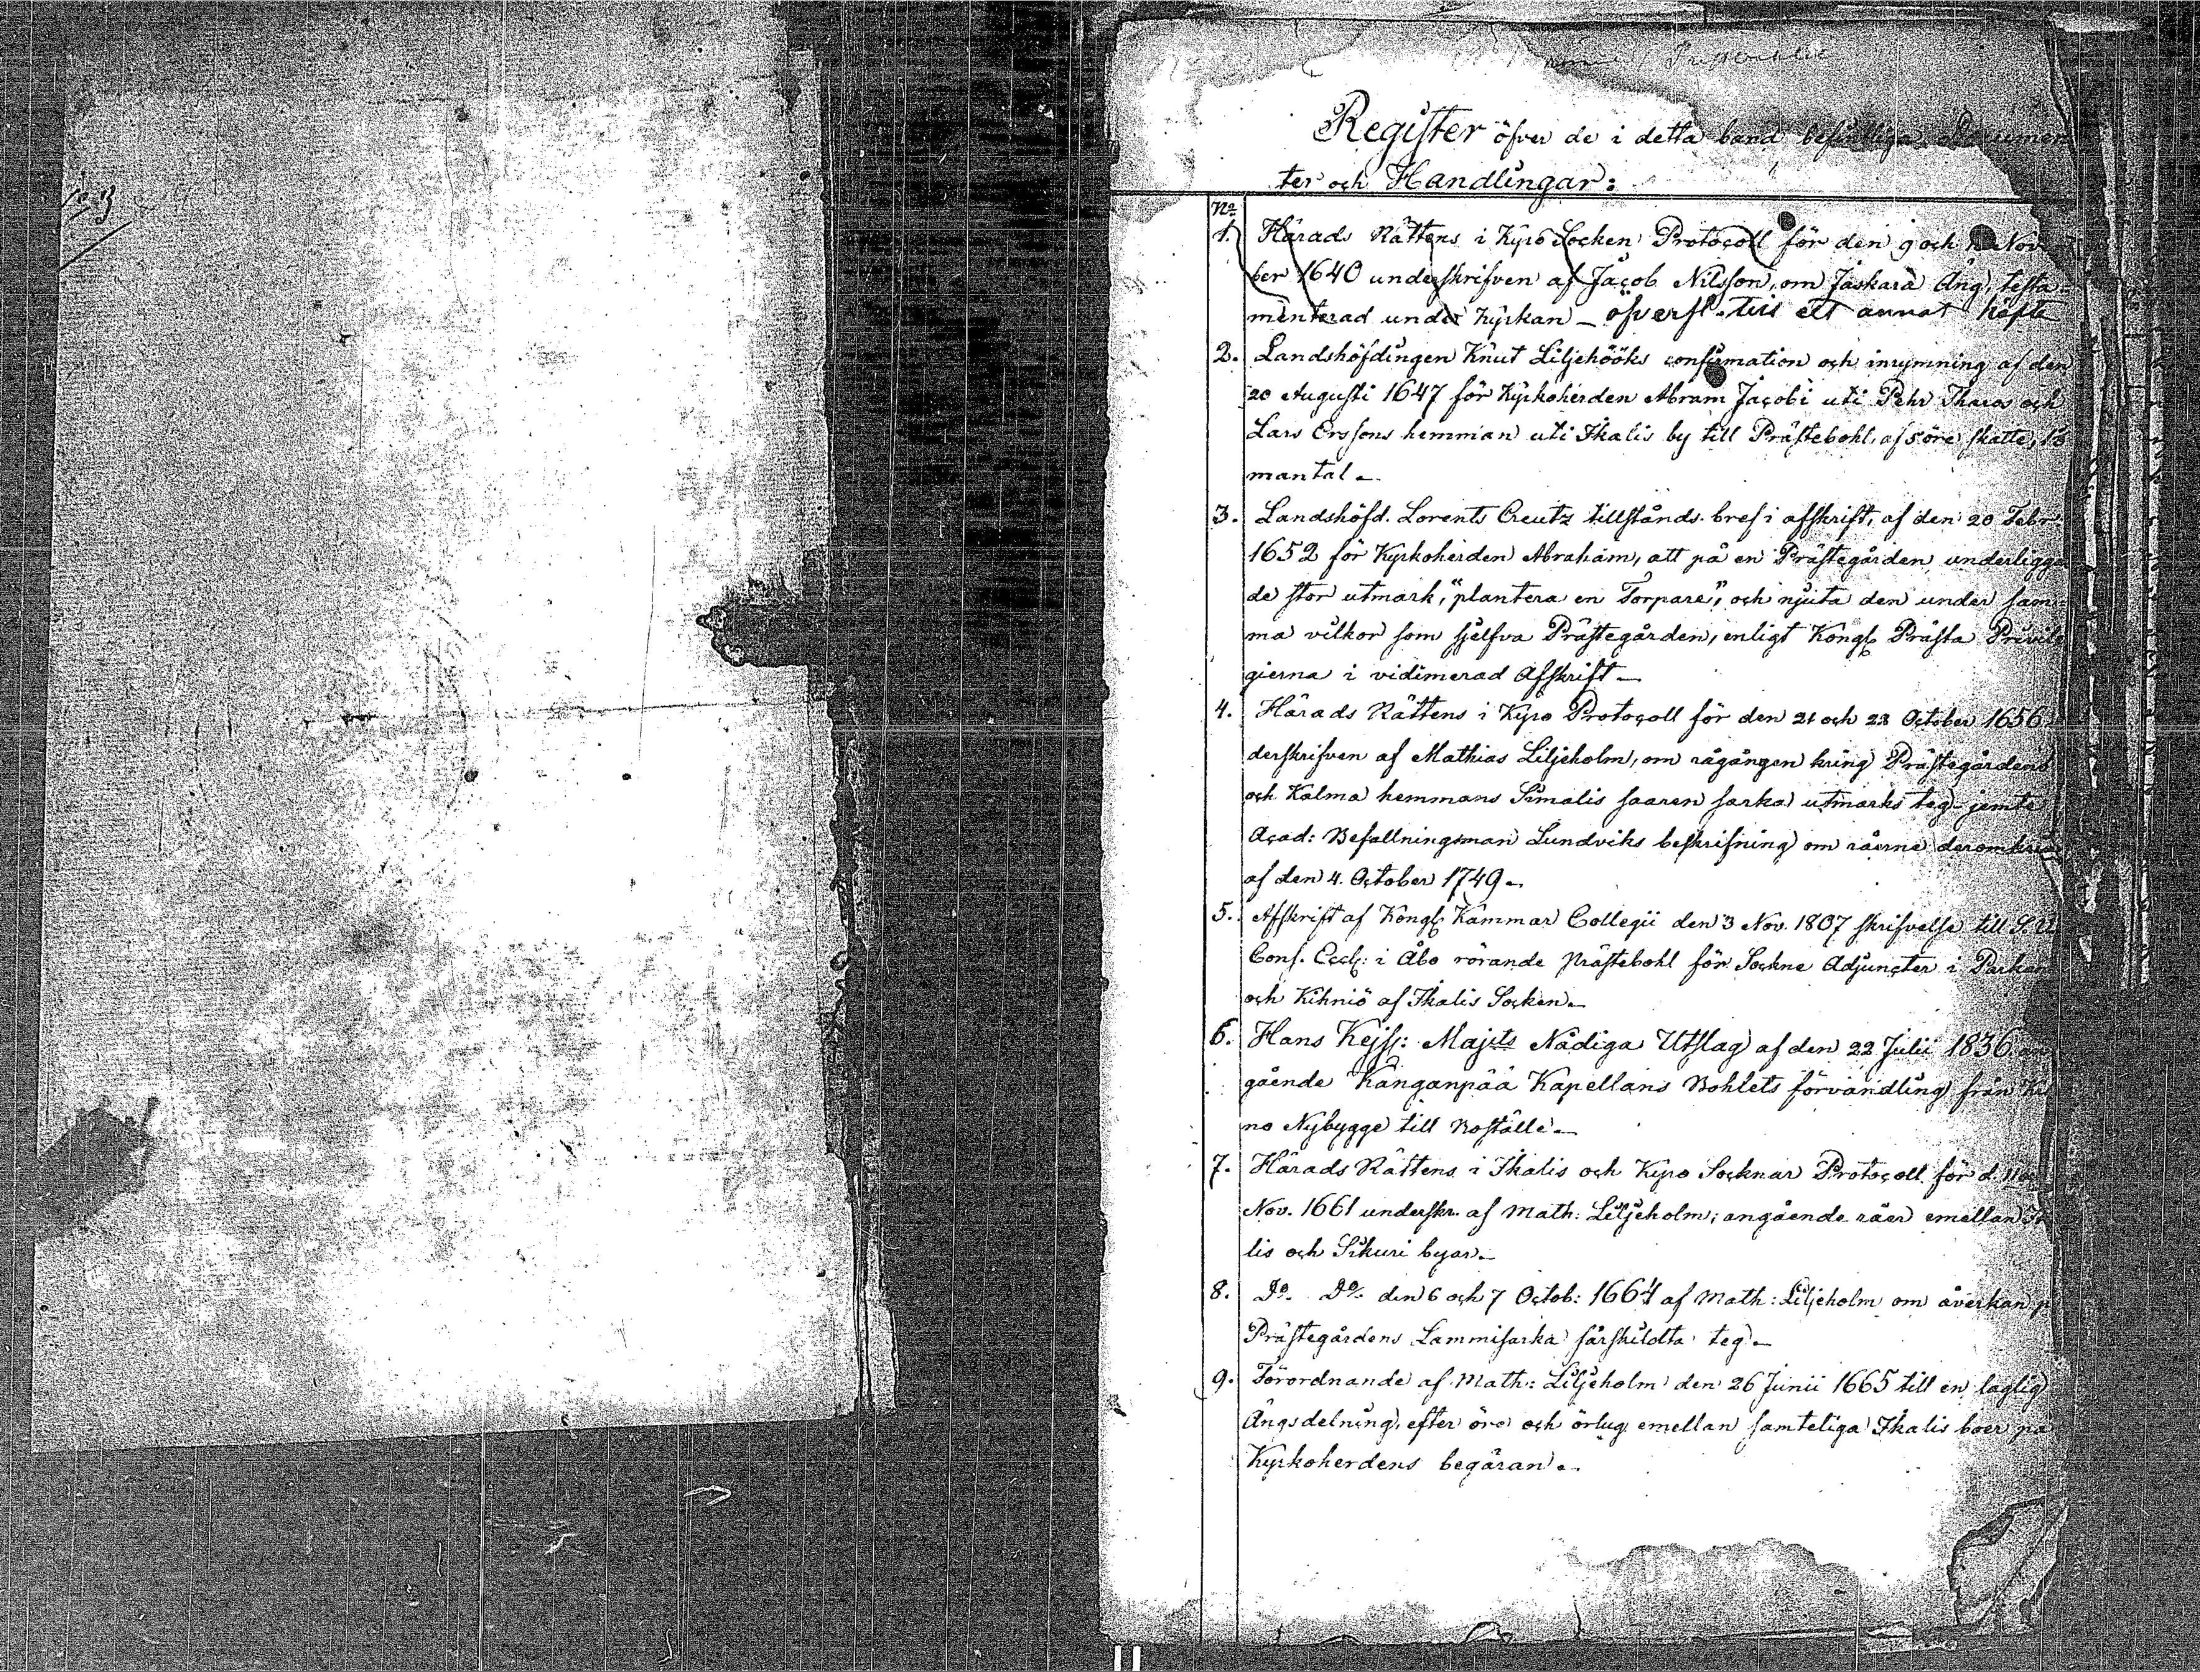 Register öfver de i detta band befintliga Documen
ter och Handlingar:
No
1. Härads Rättens i Kyro Socken Protocoll för den 9 och Nov
ber 1640 underskrifven af Jacob Nilsson, om Jaskara Äng, testa
menterad under Kyrkan – öfverfl. till ett annat häfte
2. Landshöfdingen Knut Liljehööks confirmation och inrymning af den
20 Augusti 1647 för Kyrkoherden Abram Jacobi uti Pehr Thacos och
Lars Erssons hemman uti Ikalis by till Prästebohl, af 5 öre skatte,
mantal –
3. Landshöfd. Lorents Creutz tillstånds bref i afskrift, af den 20 Febr.
1652 för Kyrkoherden Abraham, att på en Prästegården underligga
de stor utmark, "plantera en Torpare", och njuta den under sam
ma vilkor som sjelfva Prästegården, enligt Kongl. Prästa Privile
gierna i vidimerad Afskrift –
4. Härads Rättens i Kyro Protocoll för den 21 och 23 October 1656
derskrifven af Mathias Liljeholm, om rågången kring Prästegårdens
och Kalma hemmans Simalis saaren sarka utmarks teg – jemte
Acad: Befallningsman Lundviks beskrifning om råerne deromkring
af den 4. October 1749 –
5. Afskrift af Kongl. Kammar Collegii den 3 Nov. 1807 skrifvelse till
Cons. Eccl: i Åbo rörande Prästebohl för Sockne Adjuncter i Parkan
och Kihniö af Ikalis Socken –
6. Hans Kejs: Majts Nådiga Utslag af den 22 Julii 1836 an
gående Kånganpää Kapellans Bohlets förvandling från
no Nybygge till Boställe –
7. Härads Rättens i Ikalis och Kyro Socknar Protocoll för d. 11
Nov. 1661 underskr. af Math: Liljeholm, angående råer emellan Ika
lis och Sikuri byar –
8. Do. Do. den 6 och 7 Octob: 1664 af Math: Liljeholm om åverkan p
Prästegårdens Lammisarka särskildta teg –
9. Förordnande af Math: Liljeholm den 26 Junii 1665 till en laglig
Ängsdelning, efter öre och örtug emellan samteliga Ikalis boer på
Kyrkoherdens begäran –